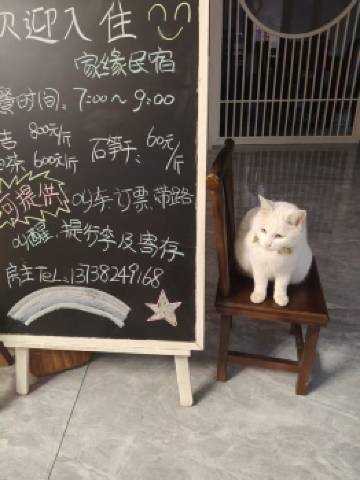 欢迎入住
家缘民宿
餐时间:7:00~9:00
吉 800元/斤
石笋干:60元/斤
茶 600元/斤
可提供
叫车、订票、带路
叫醒、提行李及寄存
房主TeL:13738249168